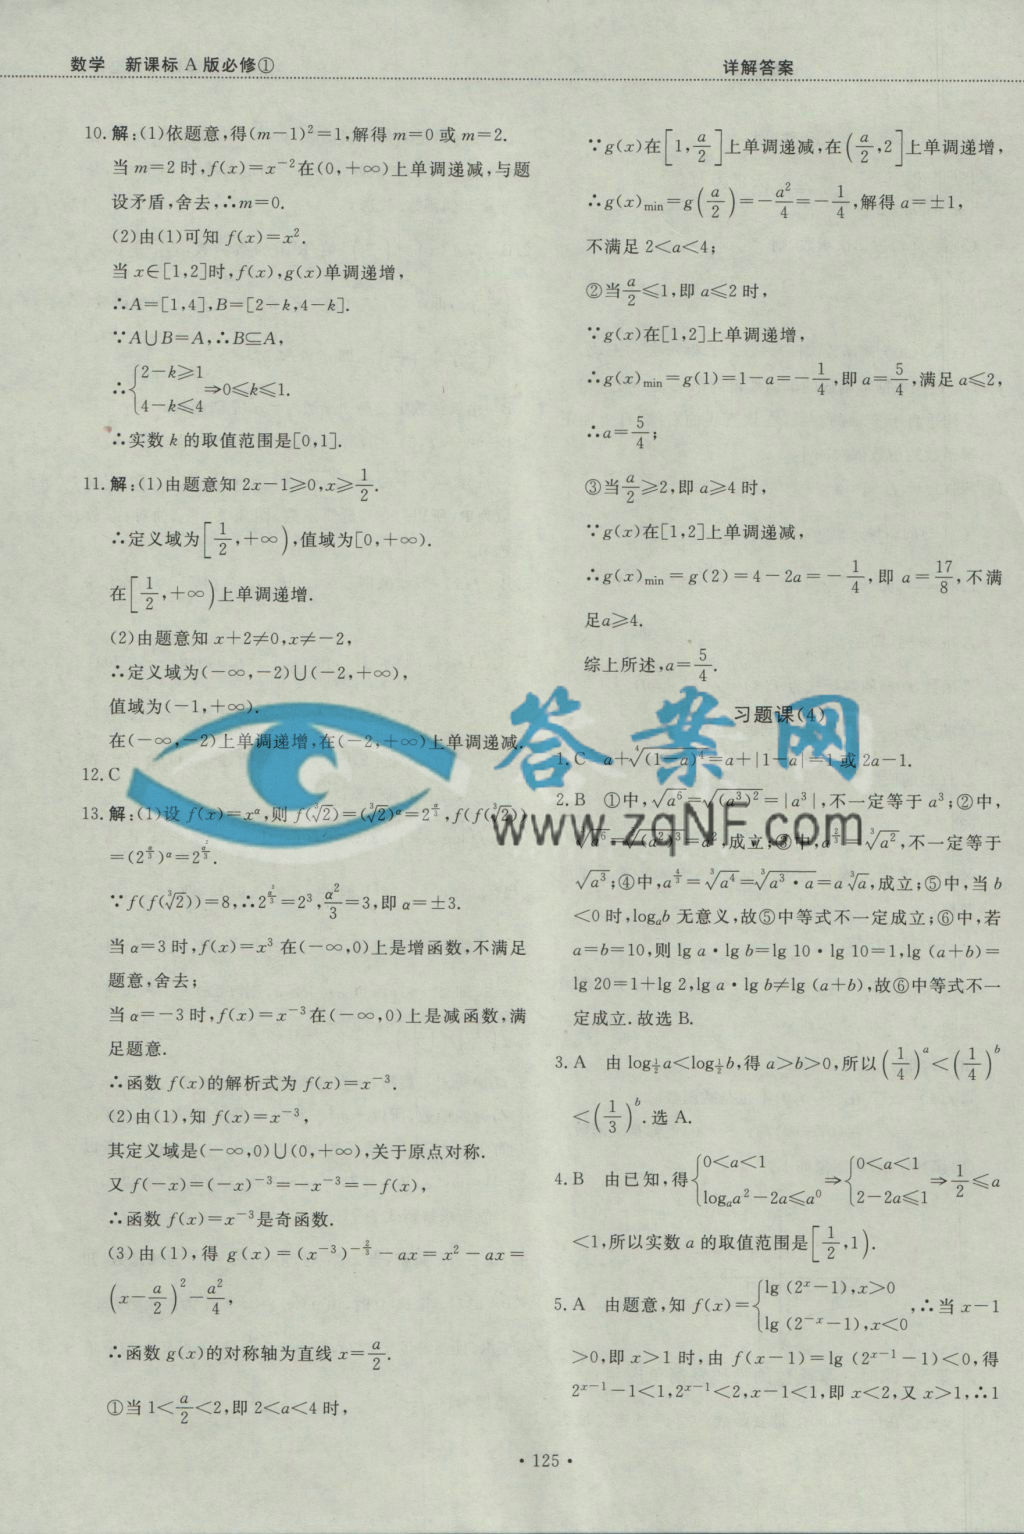 数学 新课标 A 版必修①
详解答案
10. 解:(1)依题意,得(m-1)²=1,解得 m=0 或 m=2.
当 m=2 时,f(x)=x⁻²在(0,+∞)上单调递减,与题
设矛盾,舍去,∴m=0.
(2)由(1)可知 f(x)=x².
当 x∈[1,2]时,f(x),g(x)单调递增,
∴A=[1,4],B=[2-k,4-k].
∵A∪B=A,∴B⊆A,
∴{2-k≥1, 4-k≤4 ⇒0≤k≤1.
∴实数 k 的取值范围是[0,1].
11. 解:(1)由题意知 2x-1≥0,x≥1/2.
∴定义域为[1/2,+∞),值域为[0,+∞).
在[1/2,+∞)上单调递增.
(2)由题意知 x+2≠0,x≠-2,
∴定义域为(-∞,-2)∪(-2,+∞),
值域为(-1,+∞).
在(-∞,-2)上单调递增,在(-2,+∞)上单调递减.
12. C
13. 解:(1)设 f(x)=x^α,则 f(∛2)=(∛2)^α=2^(α/3),f(f(∛2))
=(2^(α/3))^α=2^(α²/3).
∵f(f(∛2))=8,∴2^(α²/3)=2³,α²/3=3,即 α=±3.
当 α=3 时,f(x)=x³ 在(-∞,0)上是增函数,不满足
题意,舍去;
当 α=-3 时,f(x)=x⁻³在(-∞,0)上是减函数,满
足题意.
∴函数 f(x)的解析式为 f(x)=x⁻³.
(2)由(1),知 f(x)=x⁻³,
其定义域是(-∞,0)∪(0,+∞),关于原点对称.
又 f(-x)=(-x)⁻³=-x⁻³=-f(x),
∴函数 f(x)=x⁻³是奇函数.
(3)由(1),得 g(x)=(x⁻³)^(-2/3)-ax=x²-ax=
(x-a/2)²-a²/4,
∴函数 g(x)的对称轴为直线 x=a/2.
①当 1<a/2<2,即 2<a<4 时,
∵g(x)在[1,a/2]上单调递减,在(a/2,2]上单调递增,
∴g(x)min=g(a/2)=-a²/4=-1/4,解得 a=±1,
不满足 2<a<4;
②当a/2≤1,即 a≤2 时,
∵g(x)在[1,2]上单调递增,
∴g(x)min=g(1)=1-a=-1/4,即 a=5/4,满足 a≤2,
∴a=5/4;
③当a/2≥2,即 a≥4 时,
∵g(x)在[1,2]上单调递减,
∴g(x)min=g(2)=4-2a=-1/4,即 a=17/8,不满
足a≥4.
综上所述,a=5/4.
习题课(4)
1. C a+⁴√(1-a)⁴=a+|1-a|=1 或 2a-1.
2. B ①中,√a⁶=√(a³)²=|a³|,不一定等于 a³;②中,
∛a⁶=∛(a²)³=a²,成立;③中,a^(2/3)=∛a²,不一定等于
√a³;④中,a^(4/3)=∛a⁴=∛a³·a=a∛a,成立;⑤中,当 b
<0 时,logₐb 无意义,故⑤中等式不一定成立;⑥中,若
a=b=10,则 lg a·lg b=lg 10·lg 10=1,lg (a+b)=
lg 20=1+lg 2,lg a·lg b≠lg (a+b),故⑥中等式不一
定成立.故选 B.
3. A 由 log½a<log½b,得 a>b>0,所以(1/4)^a<(1/4)^b
<(1/3)^b.选 A.
4. B 由已知,得{0<a<1, logₐa²-2a≤a⁰ ⇒{0<a<1, 2-2a≤1 ⇒1/2≤a
<1,所以实数 a 的取值范围是[1/2,1).
5. A 由题意,知 f(x)={lg (2^x-1),x>0, lg (2^(-x)-1),x<0 ,∴当 x-1
>0,即 x>1 时,由 f(x-1)=lg (2^(x-1)-1)<0,得
2^(x-1)-1<1,2^(x-1)<2,x-1<1,即 x<2,又 x>1,∴1
答案网
www.zqNF.com
· 125 ·